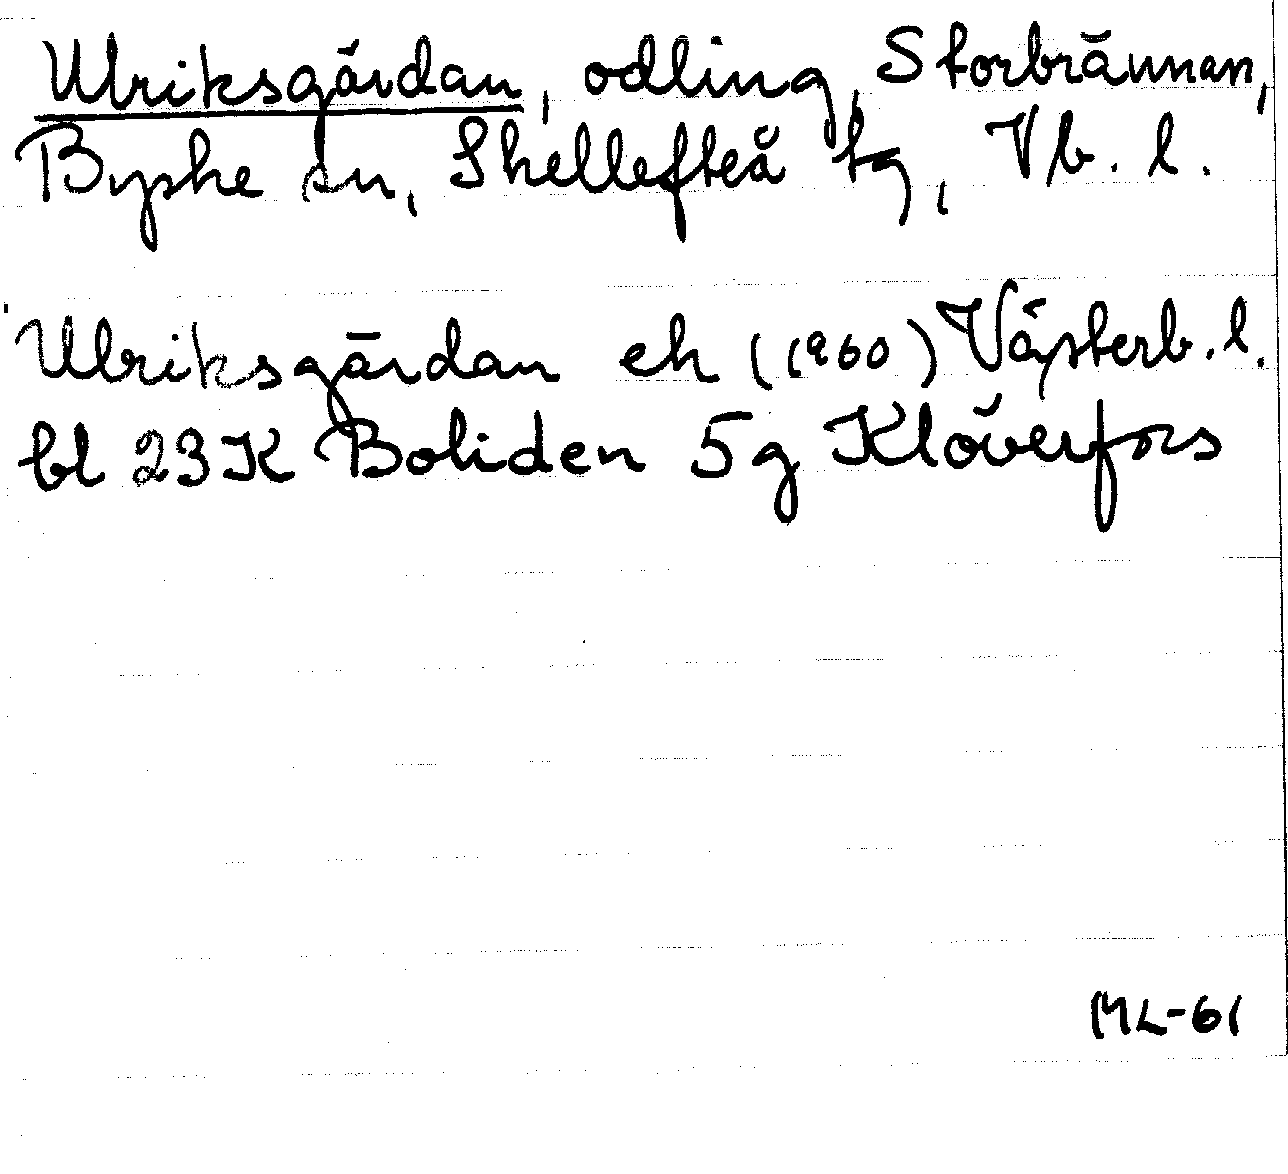 Ulriksgärdan, odling, Storbrännan,
Byske sn, Skellefteå tg, Vb. l.
Ulriksgärdan ek (1960) Västerb. l.
bl 23K Boliden 5g Klöverfors
ML-61